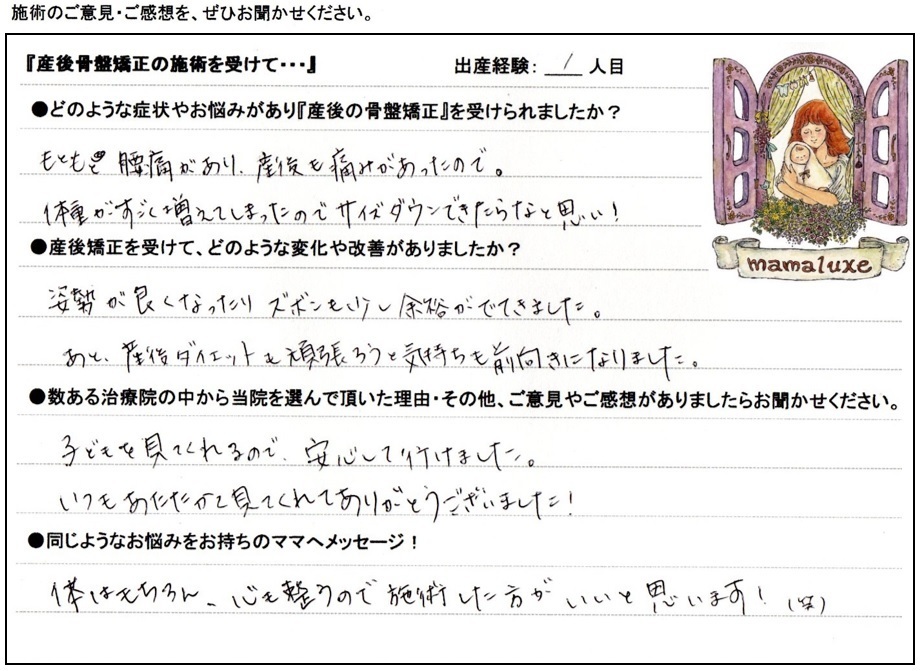 施術のご意見・ご感想を、ぜひお聞かせください。
『産後骨盤矯正の施術を受けて・・・』 出産経験: 1 人目
●どのような症状やお悩みがあり『産後の骨盤矯正』を受けられましたか？
もともと腰痛があり、産後も痛みがあったので。
体重がすごく増えてしまったのでサイズダウンできたらなと思い！
●産後矯正を受けて、どのような変化や改善がありましたか？
姿勢が良くなったりズボンも少し余裕がでてきました。
あと、産後ダイエットも頑張ろうと気持ちも前向きになりました。
●数ある治療院の中から当院を選んで頂いた理由・その他、ご意見やご感想がありましたらお聞かせください。
子どもを見てくれるので、安心して行けました。
いつもあたたかく見てくれてありがとうございました！
●同じようなお悩みをお持ちのママへメッセージ！
体はもちろん、心も整うので施術した方がいいと思います！(笑)
mamaluxe